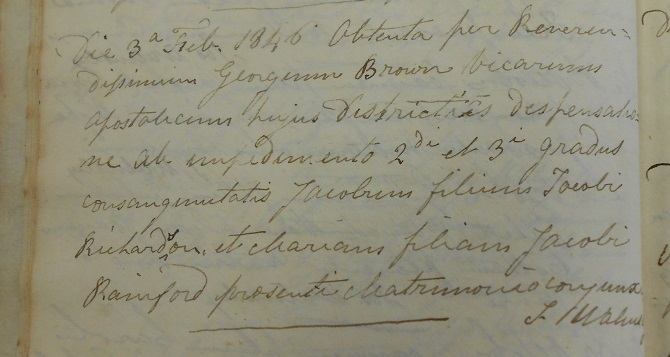 Die 3ª Feb. 1846 Obtenta per Reveren=
dissimum Georgium Brown Vicarium
Apostolicum hujus Districtûs dispensatio=
ne ab impedimento 2di et 3i gradus
consanguinitatis Jacobum filium Jacobi
Richardson, et Mariam filiam Jacobi
Rainford præsenti Matrimonio conjunxi